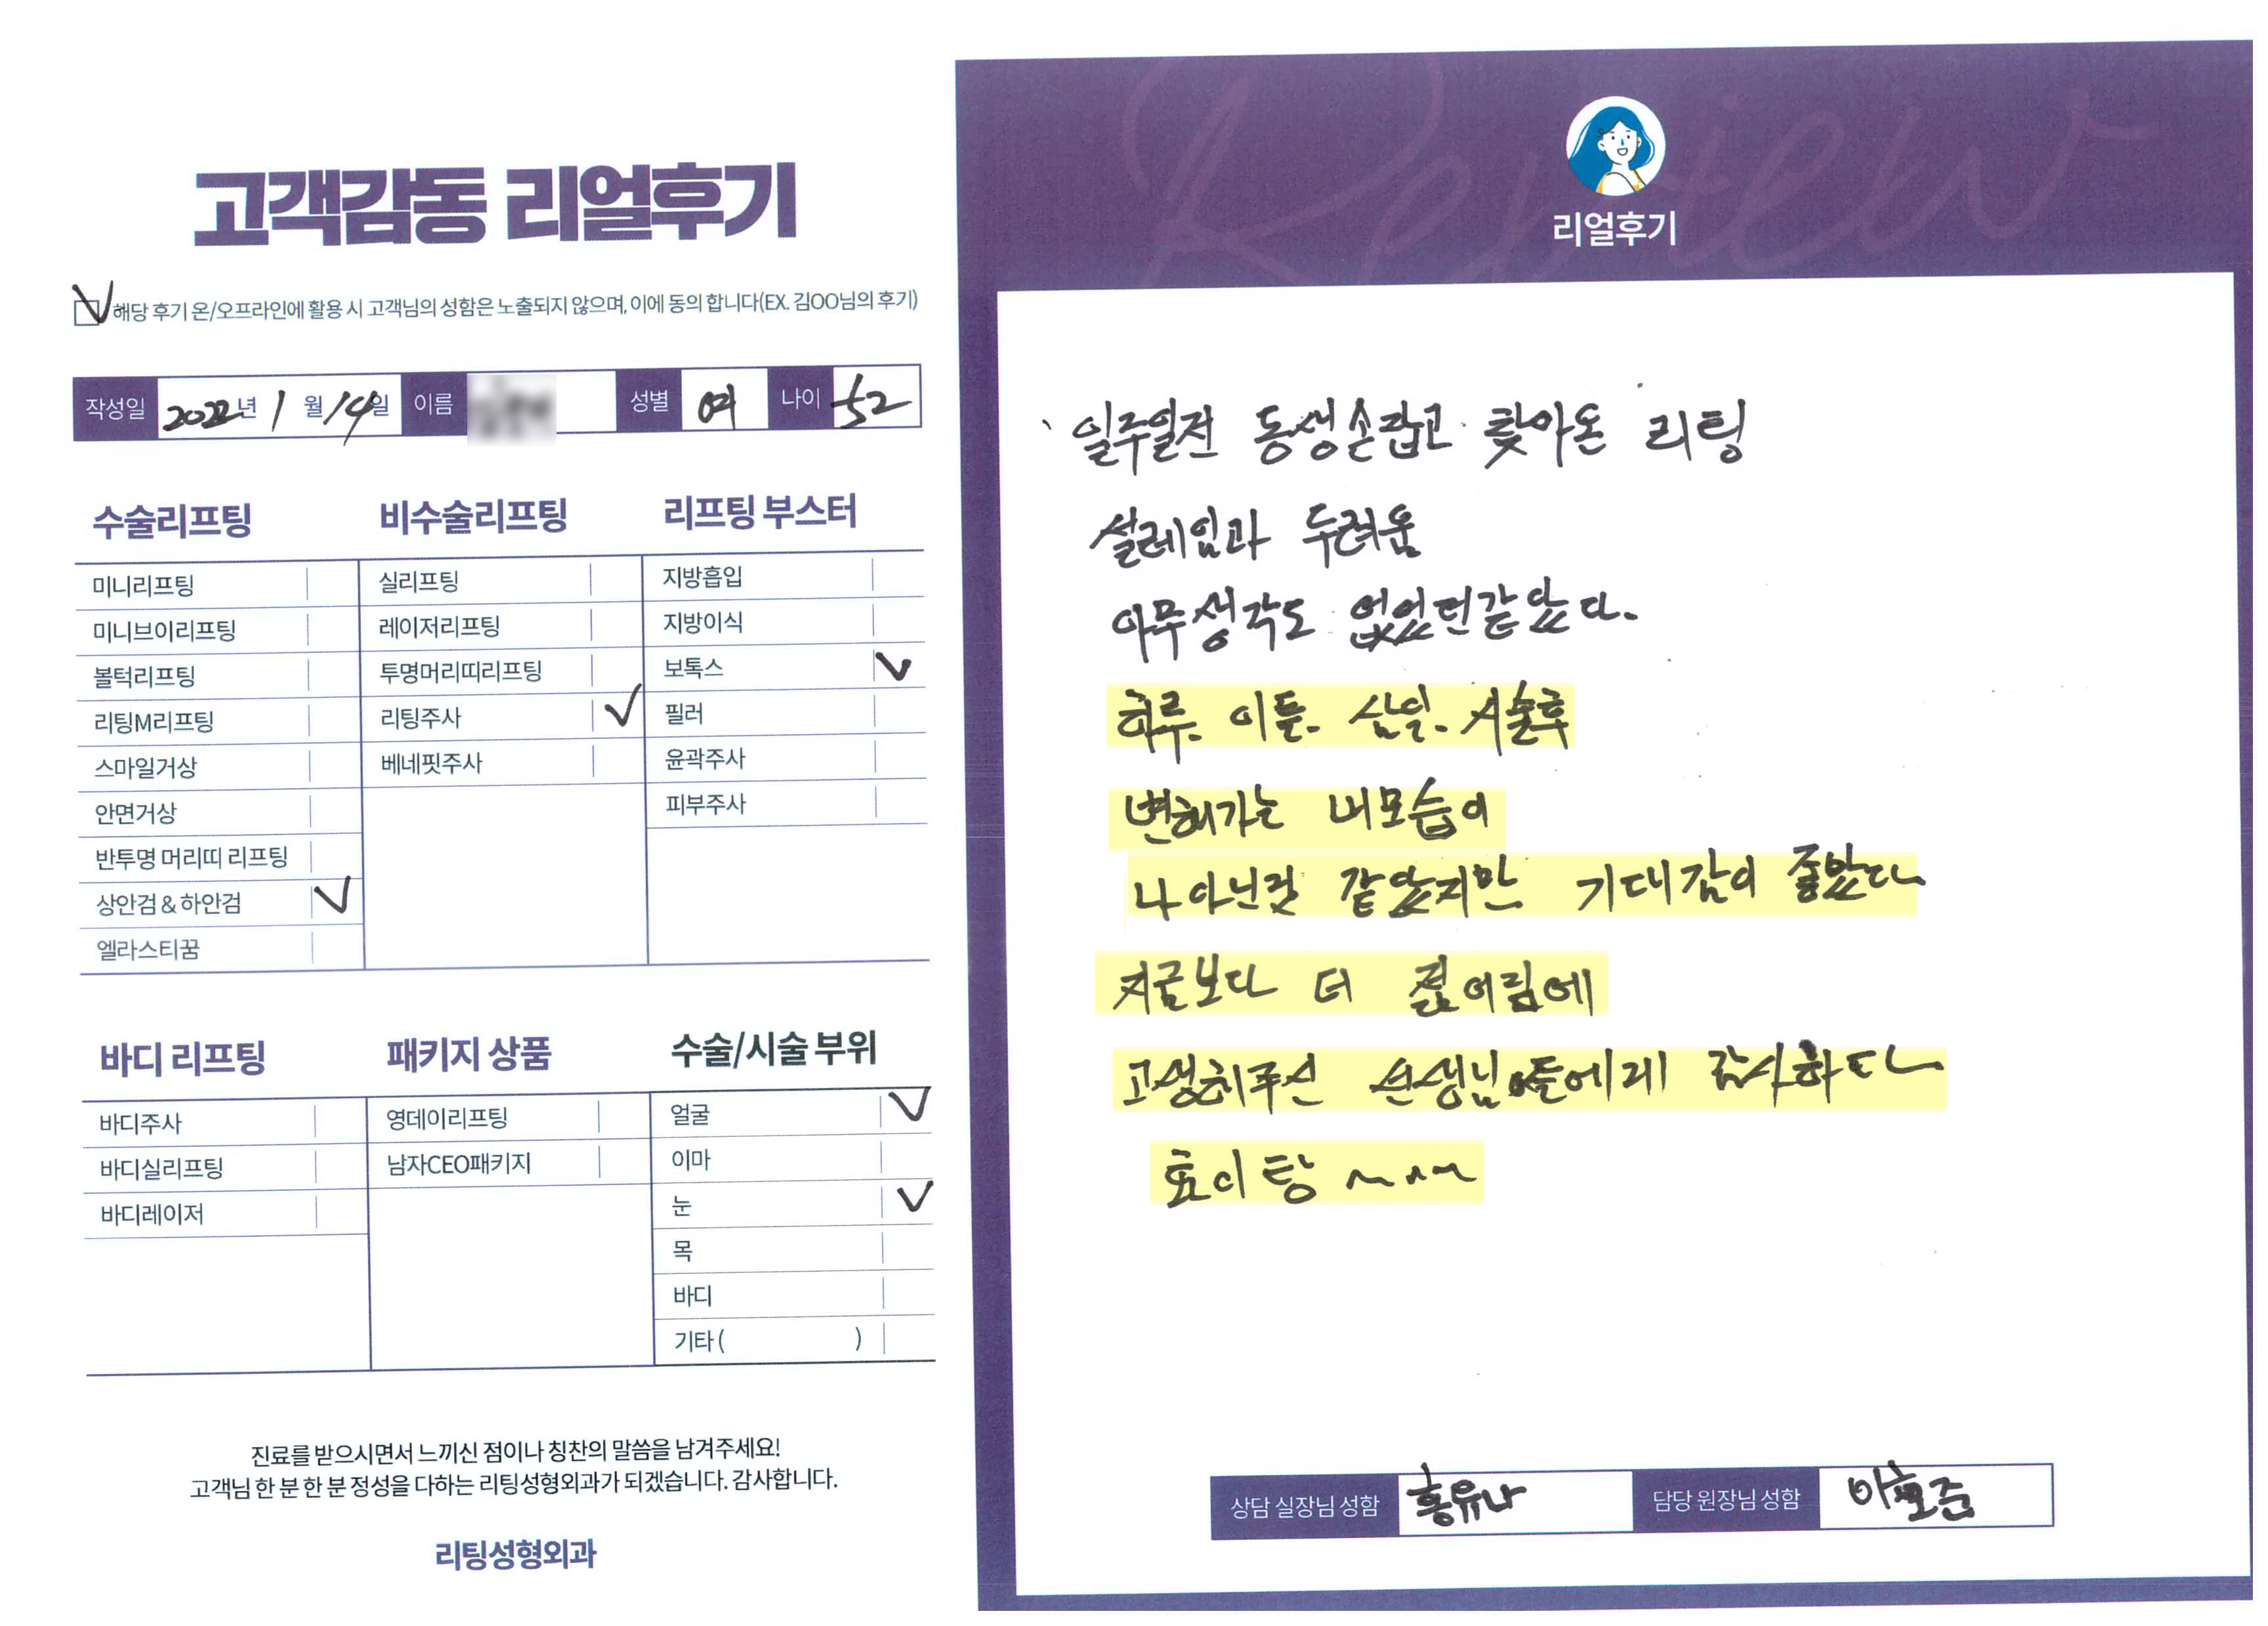 고객감동 리얼후기
해당 후기 온/오프라인에 활용 시 고객님의 성함은 노출되지 않으며, 이에 동의 합니다(EX. 김OO님의 후기)
작성일 2022년 1월 14일 이름 성별 여 나이 52
수술리프팅
미니리프팅
미니브이리프팅
볼턱리프팅
리팅M리프팅
스마일거상
안면거상
반투명 머리띠 리프팅
상안검 & 하안검
엘라스티꿈
비수술리프팅
실리프팅
레이저리프팅
투명머리띠리프팅
리팅주사
베네핏주사
리프팅 부스터
지방흡입
지방이식
보톡스
필러
윤곽주사
피부주사
바디 리프팅
바디주사
바디실리프팅
바디레이저
패키지 상품
영데이리프팅
남자CEO패키지
수술/시술 부위
얼굴
이마
눈
목
바디
기타 ( )
진료를 받으시면서 느끼신 점이나 칭찬의 말씀을 남겨주세요!
고객님 한 분 한 분 정성을 다하는 리팅성형외과가 되겠습니다. 감사합니다.
리팅성형외과
Review
리얼후기
일주일전 동생손잡고 찾아온 리팅
설레임과 두려움
아무생각도 없었던같았다.
하루. 이틀. 삼일. 시술후
변해가는 내모습이
나아닌것 같았지만 기대감이 좋았다
지금보다 더 젊어짐에
고생해주신 선생님들에게 감사하다
화이팅 ~~~
상담 실장님 성함 홍유나 담당 원장님 성함 이호준